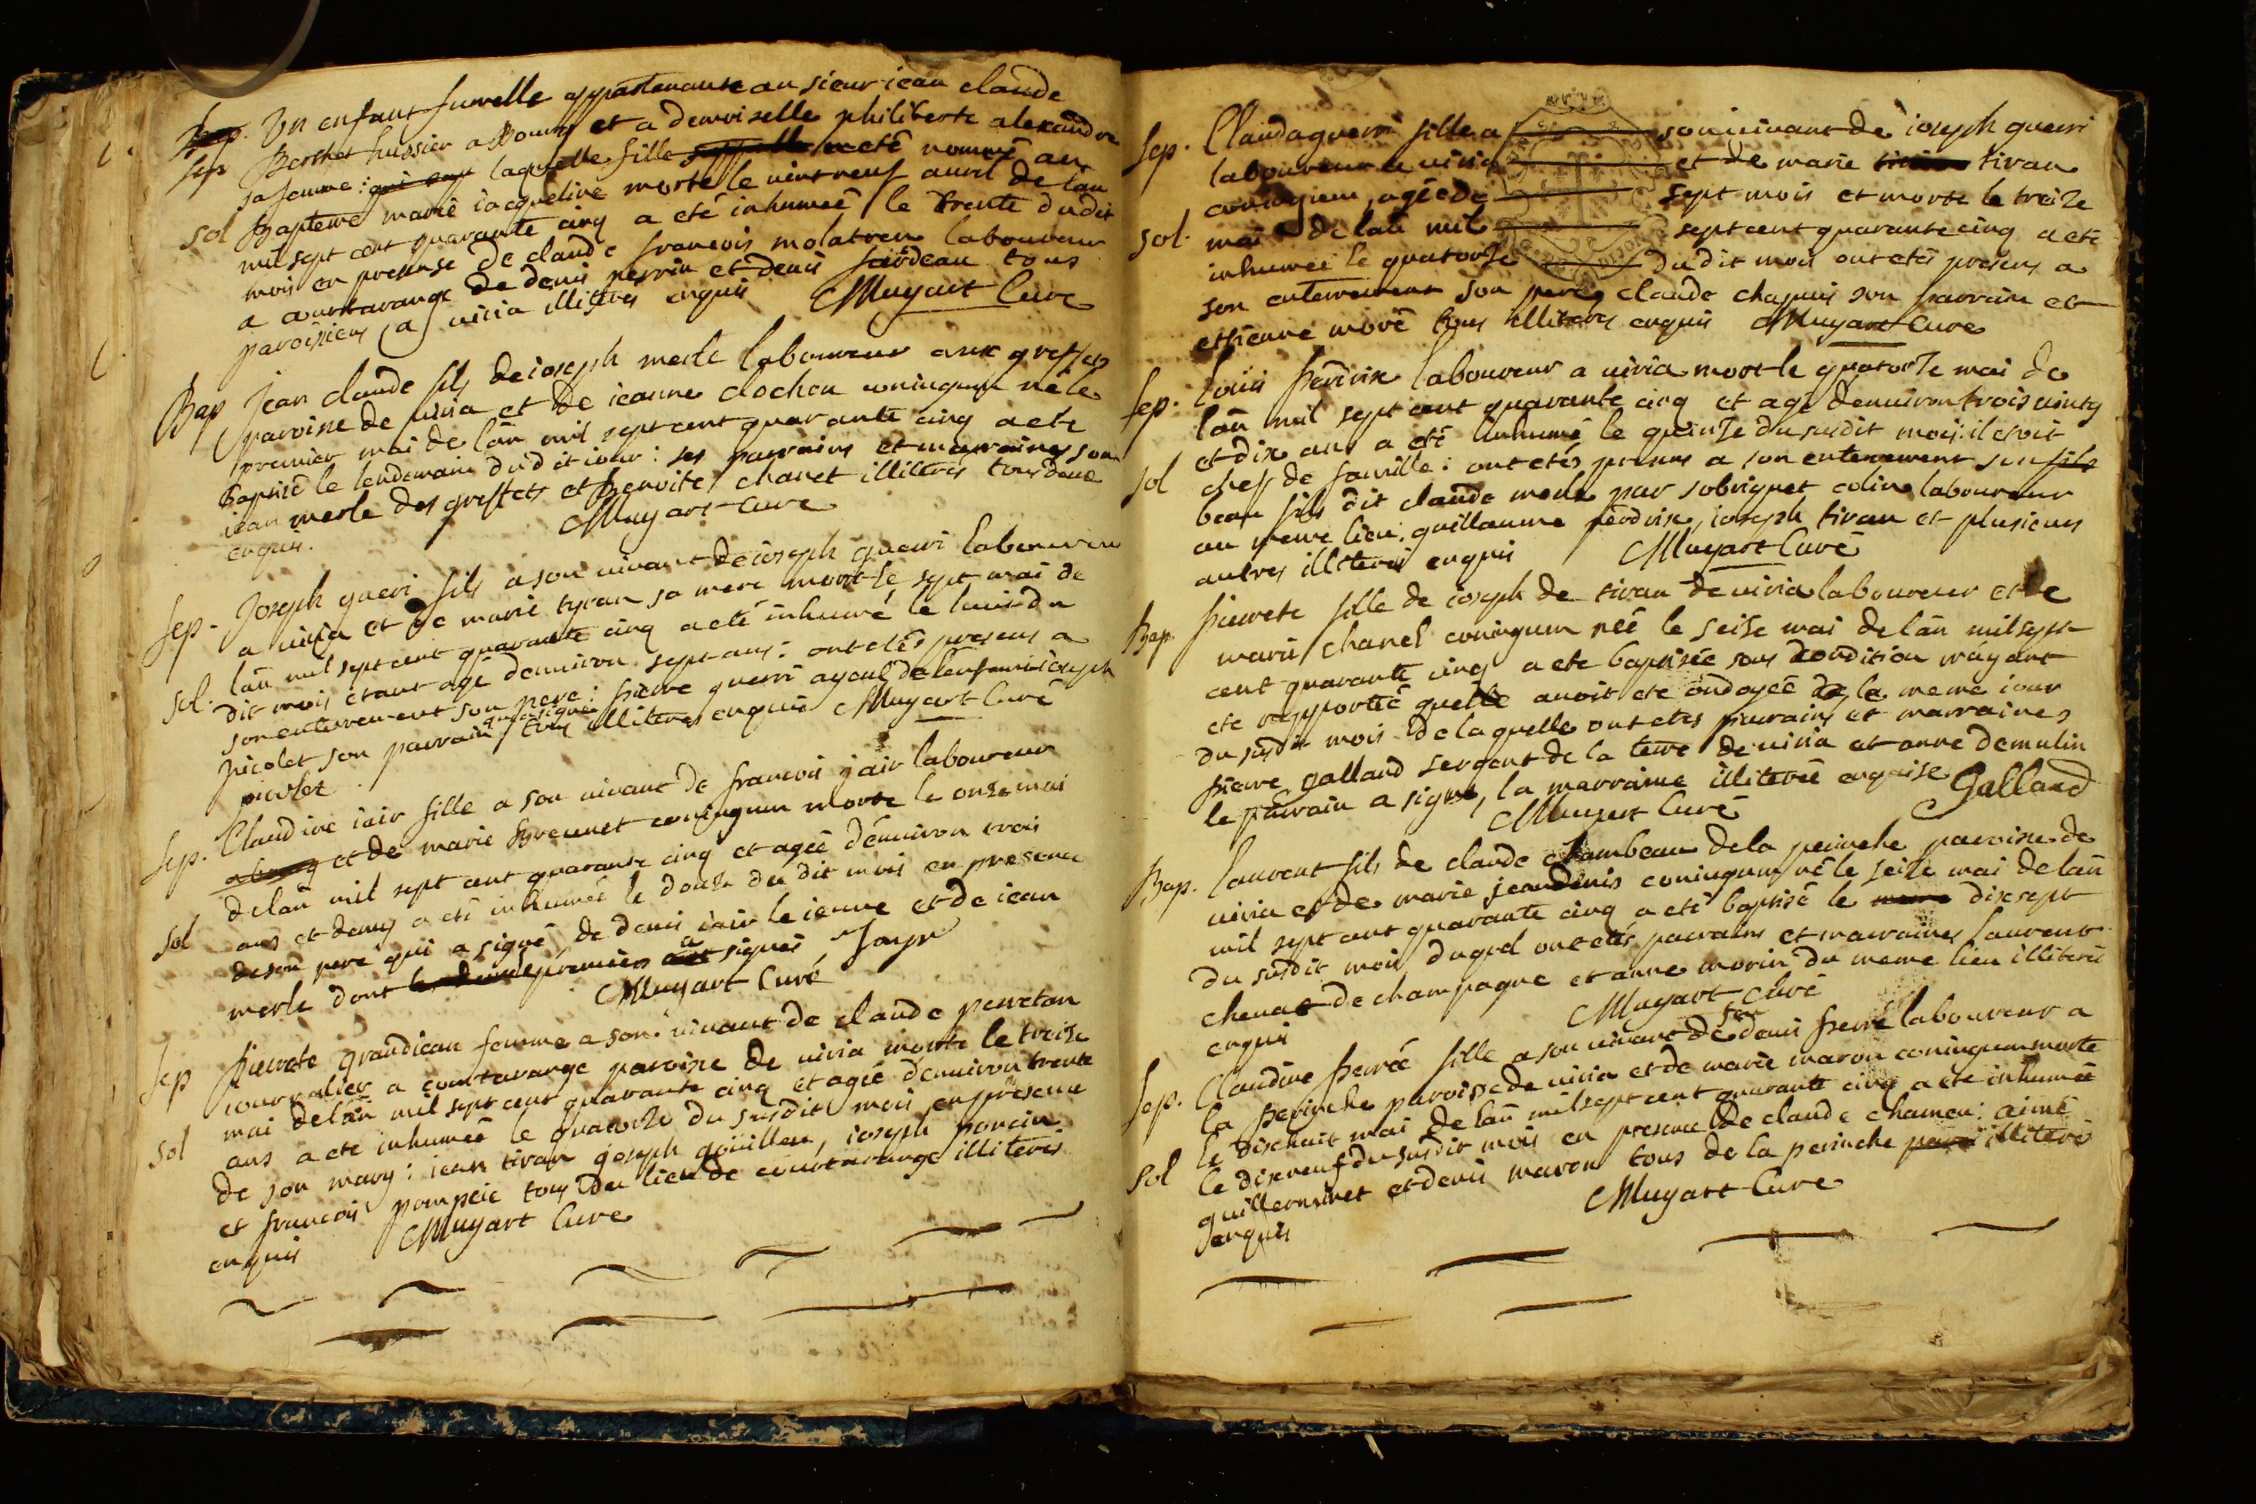 Bap. Un enfant fumelle appartenante au sieur iean claude
Sep Berthet huissier a Bourg et a demoiselle philiberte alexandre
sa femme : laquelle fille a eté nommé au
Bapteme marie iacqueline morte le vint neuf avril de lan
sol
mil sept cent quarante cinq a eté inhumeé le trente dudit
mois en presense de claude francois molatren laboureur
a courtarange de denis perrin et denis jaideau tous
paroissiens a viria illiteres enquis CMuyart Curé
Bap Jean claude fils de ioseph merle laboureur aux greffets
paroisse de viria et de ieanne clochon coniugum né le
premier mai de lan mil sept cent quarante cinq a eté
Baptisé le lendemain dudit iour : ses parrains et marraines sont
iean merle des greffets et Benoite chanet illiteres tous deux
enquis. CMuyart Curé
Sep. Joseph gueri fils a son vivant de ioseph gueri laboureur
a viria et de marie tyran sa mere mort le sept mai de
lan mil sept cent quarante cinq a eté inhumé le huit du
sol. dit mois étant agé denviron sept ans : ont etés presens a
son enterrement son pere : pierre guerri ayeul de lenfant ioseph
picolet son parrain tous illiteres enquis CMuyart Curé
picolet
Sep. Claudine iair fille a son vivant de francois jair laboureur
et de marie Byrennet coniugum morte le onze mai
delan mil sept cent quarante cinq et ageé denviron trois
sol ans et demy a eté inhumeé le douze du dit mois en presence
de son pere qui a signé, de denis iair le ieune et de iean
merle dont premier a signé Jayr
CMuyart Curé
Sep Pierrete grandiean femme a son vivant de claude perretan
iournalier a courtarange paroisse de viria morte le treize
mai delan mil sept cent quarante cinq et ageé denviron trente
sol ans a eté inhumeé le quatorze du susdit mois en presence
de son mary : iean tiran joseph goüillen, ioseph poncin
et francois pompeie tous du lieu de courtarange illiteres
enquis CMuyart Curé
Sep. Clauda guerri fille a son vivant de ioseph guerri
laboureur a viria et de marie tiran
coniugum, ageé de sept mois et morte le treize
sol. mai de lan mil sept cent quarante cinq a eté
inhumeé le quatorze dudit mois ont etés presens a
son enterrement son pere, claude chapuis son parrain et
etienne moré tous illiteres enquis CMuyart Curé
Sep. Louis perdrix laboureur a viria mort le quatorze mai de
lan mil sept cent quarante cinq et agé denviron trois vints
et dix ans a eté inhumé le quinze du susdit mois : il etoit
sol chef de famille : ont etés presens a son enterrement son fils
beau fils dit claude merle par sobriquet colin laboureur
au meme lieu, guillaume perdrix, ioseph tiran et plusieurs
autres illiteres enquis CMuyart Curé
Bap. Pierrete fille de ioseph de tiran de viria laboureur et de
marie chanel coniugum neé le seize mai de lan mil sept
cent quarante cinq a eté baptisée sous condition mayant
eté rapporté quelle avoit eté ondoyée le meme iour
du susdit mois de laquelle ont etes parrains et marraines
pierre galland sergent de la terre de viria et anne demulin
le parrain a signé, la marraine illiterée enquise Galland
CMuyart Curé
Bap. Laurent fils de claude chambeau dela perinche paroisse de
viria et de marie jeandenis coniugum né le seize mai de lan
mil sept cent quarante cinq a eté baptisé le dixsept
du susdit mois duquel ont etés parrains et marraines laurent
chenat de champagne et anne morin du meme lieu illiteres
enquis CMuyart Curé
Sep. Claudine perré fille a son vivant de feu denis perré laboureur a
la perinche paroisse de viria et de marie maron coniugum morte
le dixhuit mai de lan mil sept cent quarante cinq a eté inhumeé
sol le dixneuf du susdit mois en presence de claude chamen : aimé
guillerminet et denis maron tous de la perinche illiteres
enquis CMuyart Curé